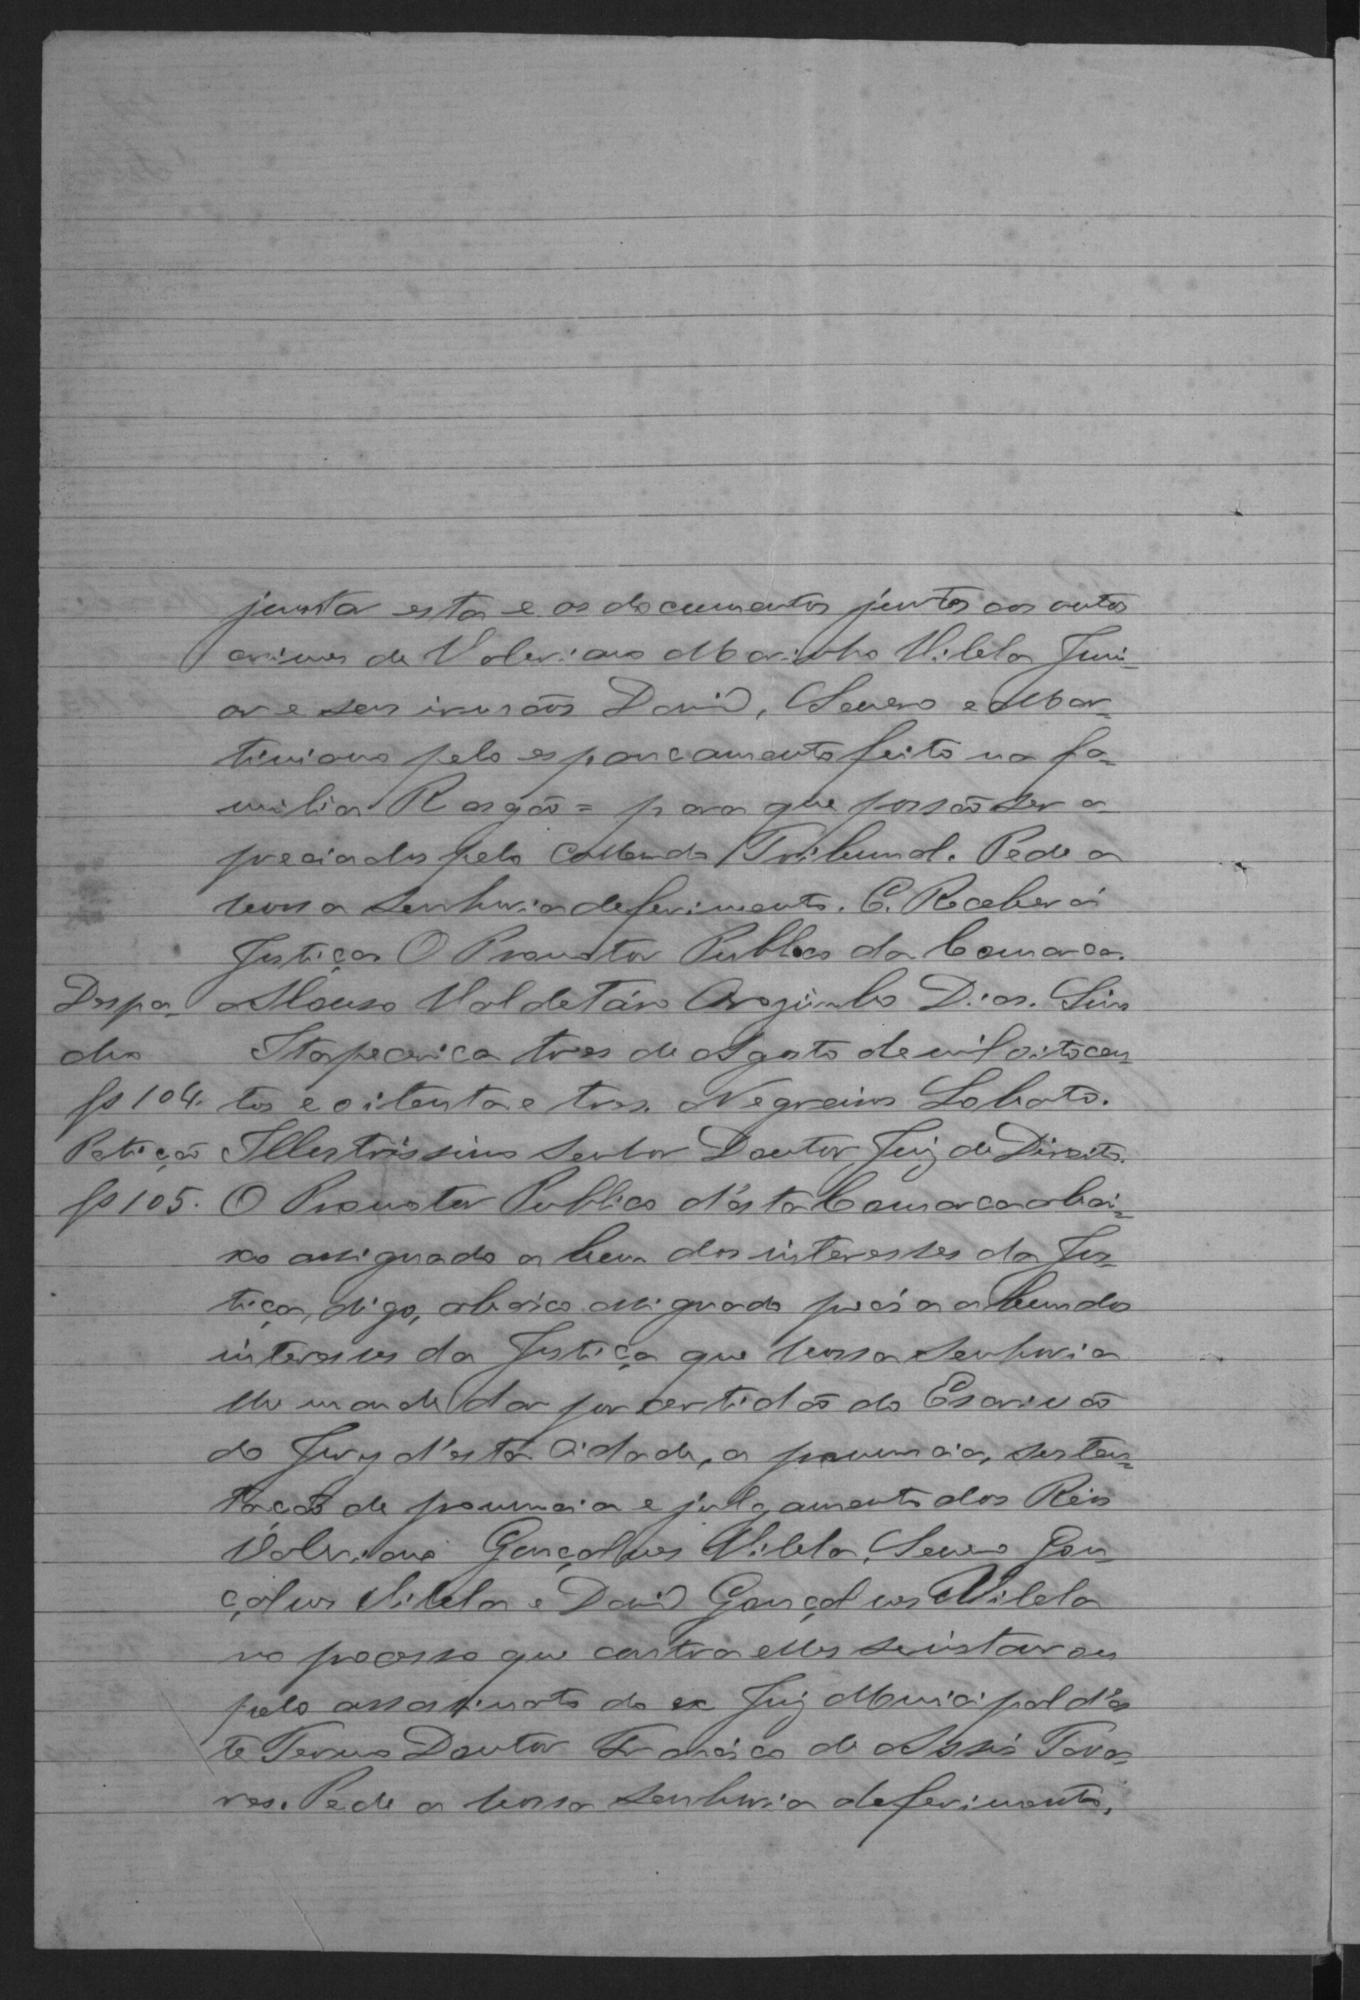 junta esta e os documentos juntos aos autos
crimes de Valeriano Marinho Vilela Juni-
or e seus irmãos David, Severo e Mar-
tiniano pelo espancamento feito na fa-
milia Rasgão = para que possão ser a-
preciados pelo Collendo Tribunal. Pede a
vossa senhoria deferimento. E. Receberá
Justiça O Promotor Publico da Comarca.
Despa- Afonso Valdetáro Dias. Sim
cho Itapecerica tres de Agosto de mil oitocen-
fs 104. tos e oitenta e tres. Negreiros Lobato.
Petição Illustrissimo Senhor Doutor Juiz de Direito.
fs 105. O Promotor Publico d'ésta Comarca abai-
xo assignado a bem dos interesses da Jus-
tiça, digo, abaixo assignado precisa a bem dos
interesses da Justiça que vossa senhoria
lhe mande dar por certidão do Escrivão
do Jury d'esta Cidade, a pronuncia, susten-
tação de pronuncia e julgamento dos Réos
Valeriano Gonçalves Vilela, Severo Gon-
çalves Vilela e David Gonçalves Vilela
no processo que contra elles se instaurou
pelo assassinato do ex Juiz Municipal d'és-
te Termo Doutor Francisco de Assis Tava-
res. Pede a vossa senhoria deferimento.